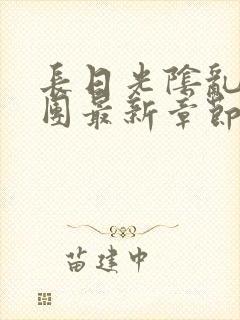 長日光陰亂
團最新章節
苗建中